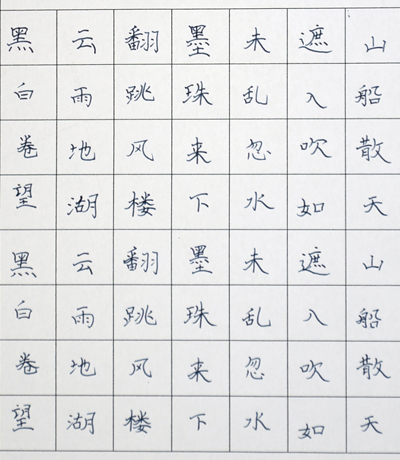 黑云翻墨未遮山
白雨跳珠乱入船
卷地风来忽吹散
望湖楼下水如天
黑云翻墨未遮山
白雨跳珠乱入船
卷地风来忽吹散
望湖楼下水如天